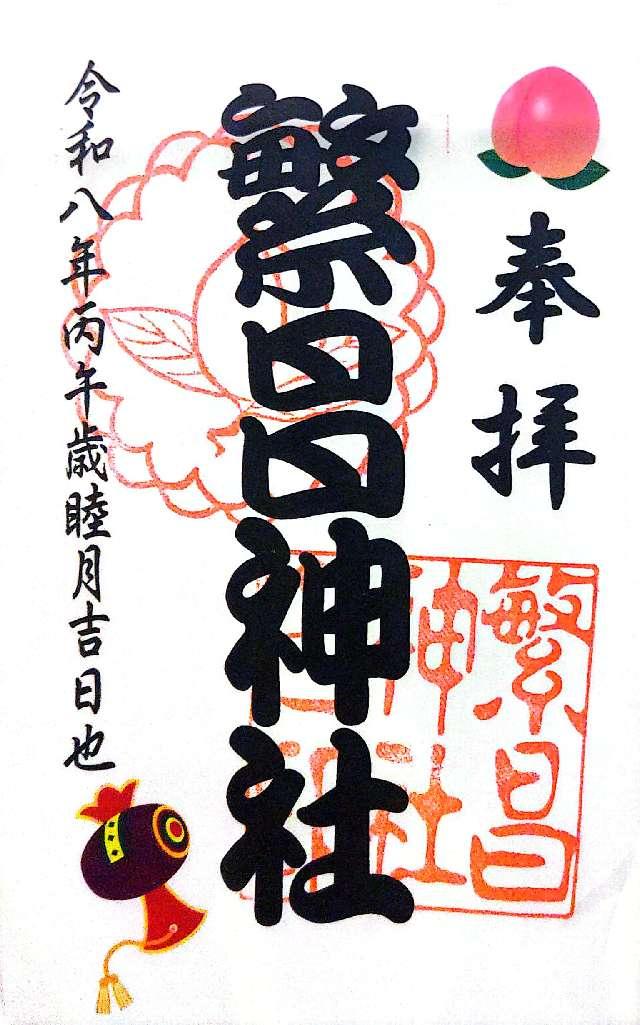 奉拝
繁昌神社
令和八年丙午歳睦月吉日也
繁昌
神社